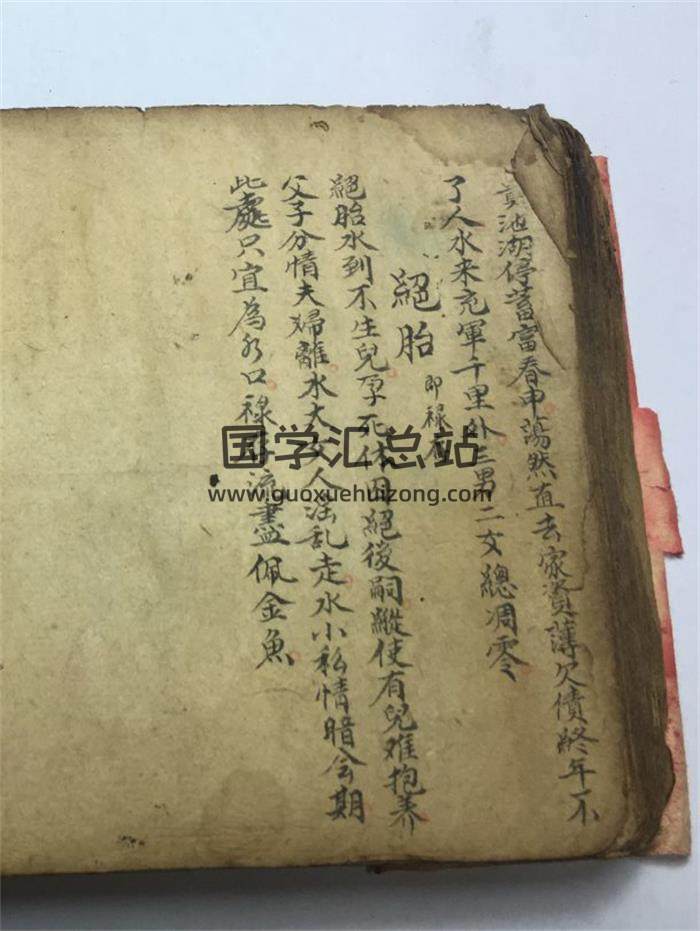 池湖停蓄富春申蕩然直去家資薄欠債終年不
了人水来充軍千里外三男二女總凋零
絕胎 即祿存
絕胎水到不生兒孕死休囚絕後嗣縱使有兒难抱養
父子分情夫婦離水大女人淫乱走水小私情暗会期
此處只宜為水口祿存流盡佩金魚
国学汇总站
www.guoxuehuizong.com